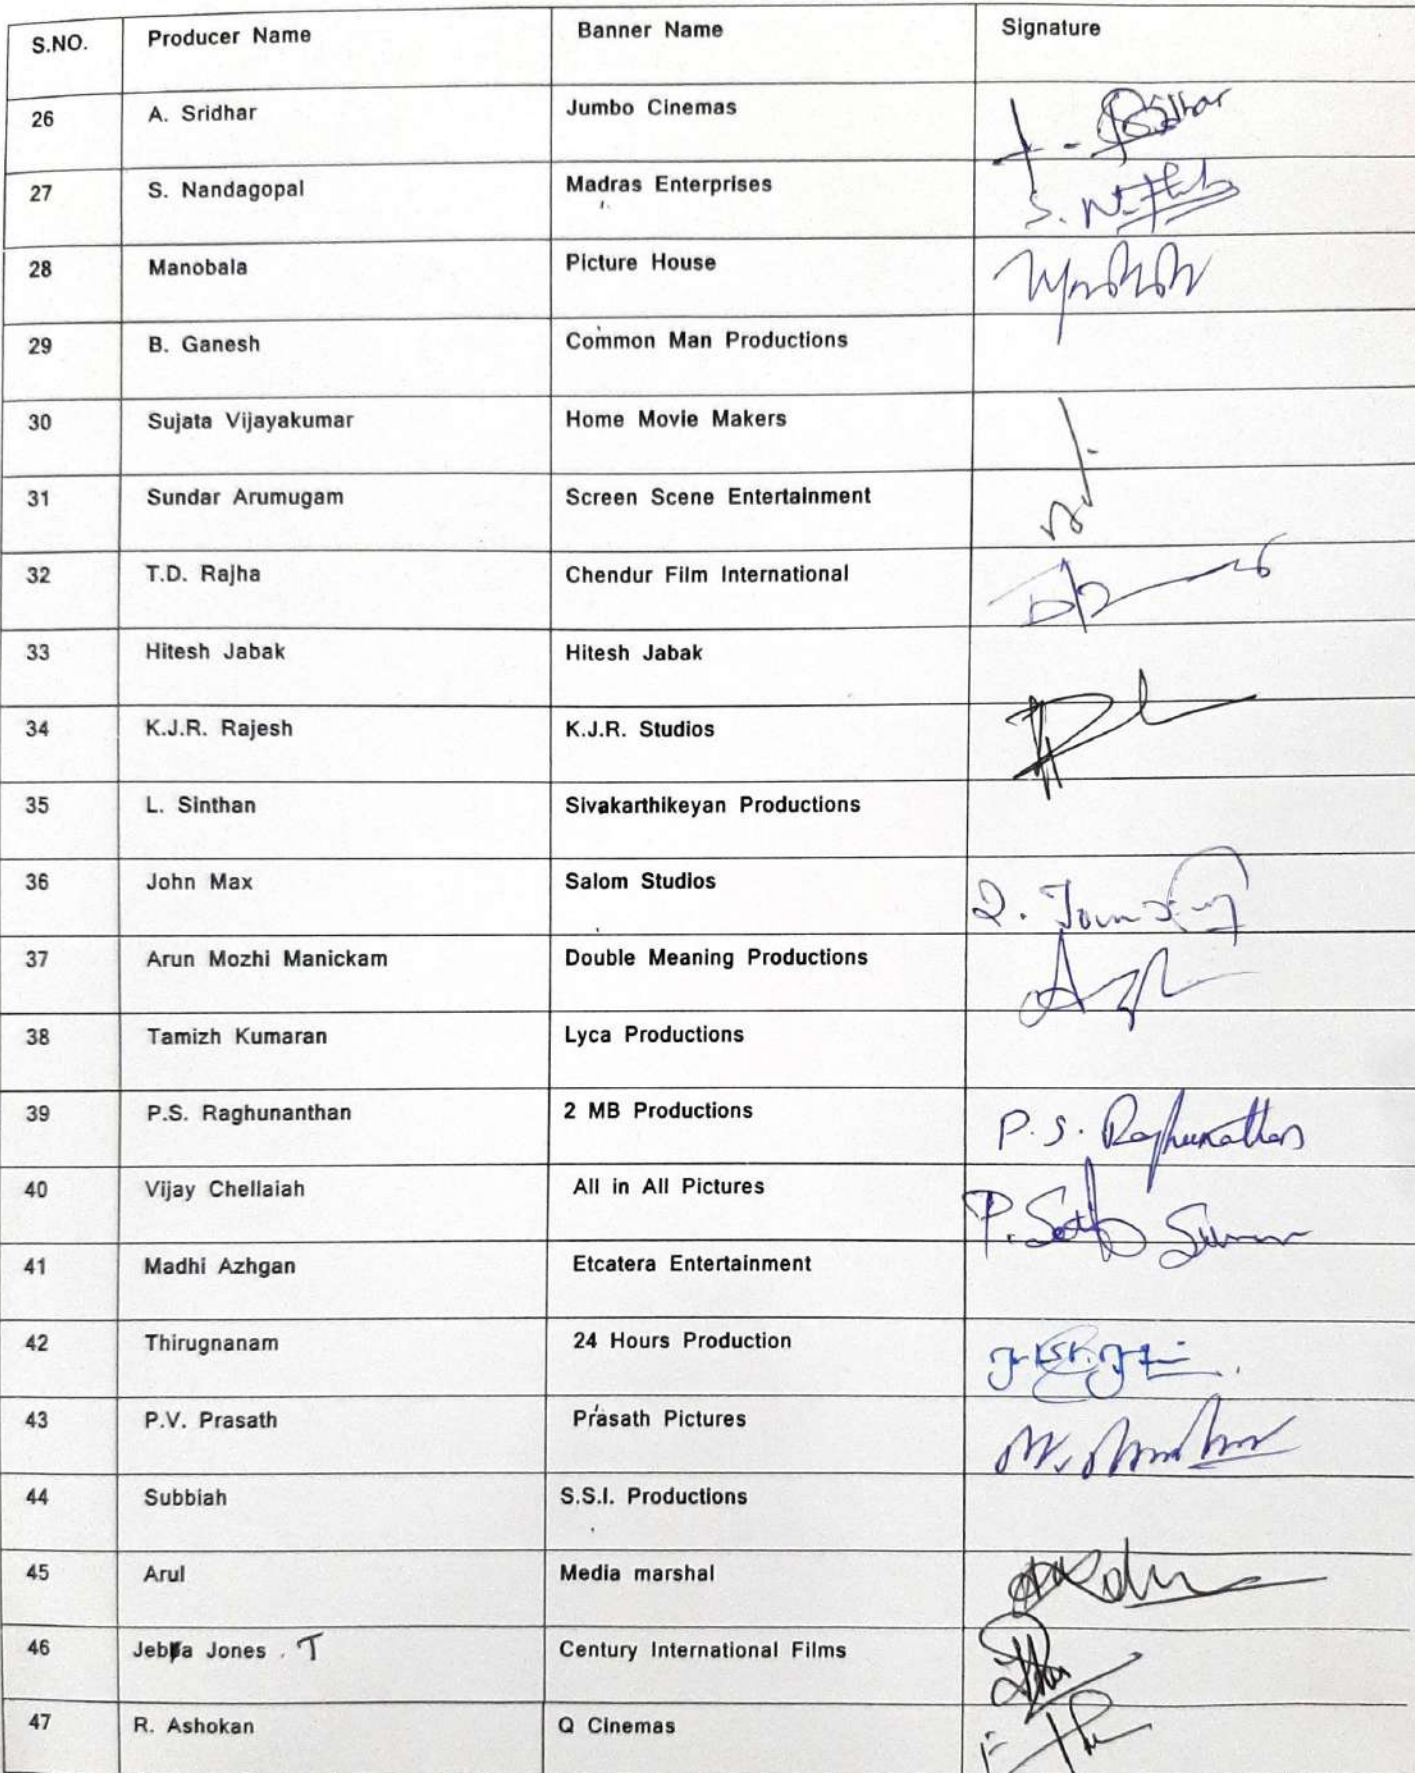 S.NO. Producer Name Banner Name Signature
26 A. Sridhar Jumbo Cinemas
27 S. Nandagopal Madras Enterprises
28 Manobala Picture House
29 B. Ganesh Common Man Productions
30 Sujata Vijayakumar Home Movie Makers
31 Sundar Arumugam Screen Scene Entertainment
32 T.D. Rajha Chendur Film International
33 Hitesh Jabak Hitesh Jabak
34 K.J.R. Rajesh K.J.R. Studios
35 L. Sinthan Sivakarthikeyan Productions
36 John Max Salom Studios
37 Arun Mozhi Manickam Double Meaning Productions
38 Tamizh Kumaran Lyca Productions
39 P.S. Raghunanthan 2 MB Productions P.S. Raghunathan
40 Vijay Chellaiah All in All Pictures
41 Madhi Azhgan Etcatera Entertainment
42 Thirugnanam 24 Hours Production
43 P.V. Prasath Prasath Pictures
44 Subbiah S.S.I. Productions
45 Arul Media marshal
46 Jones . T Century International Films
47 R. Ashokan Q Cinemas